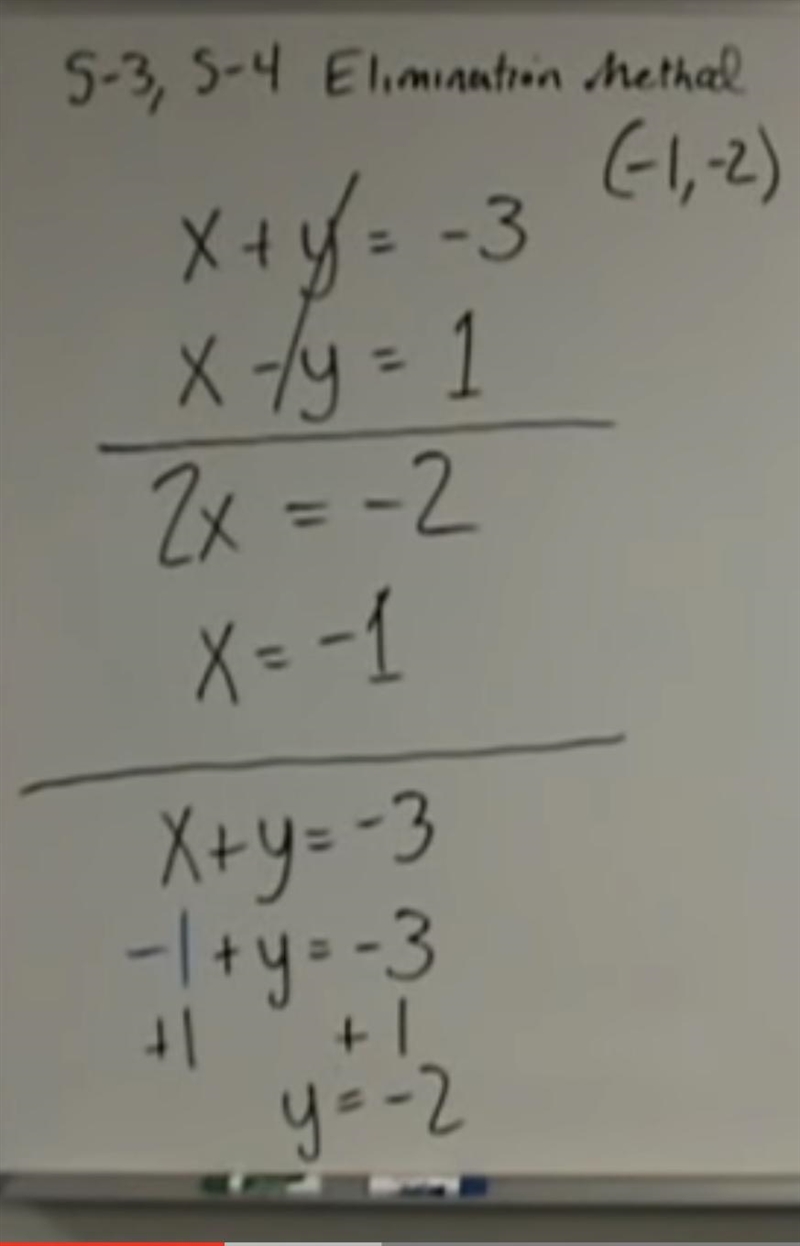 5-3, 5-4 Elimination Method
(-1,-2)
x + y = -3
x - y = 1
2x = -2
x = -1
x + y = -3
-1 + y = -3
+1 +1
y = -2